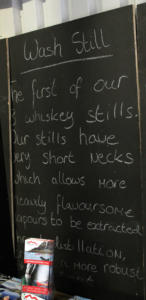 Wash Still
The first of our
3 whiskey stills.
Our stills have
very short necks
which allows more
heavily flavoursome
vapours to be extracted
distillation,
a more robust